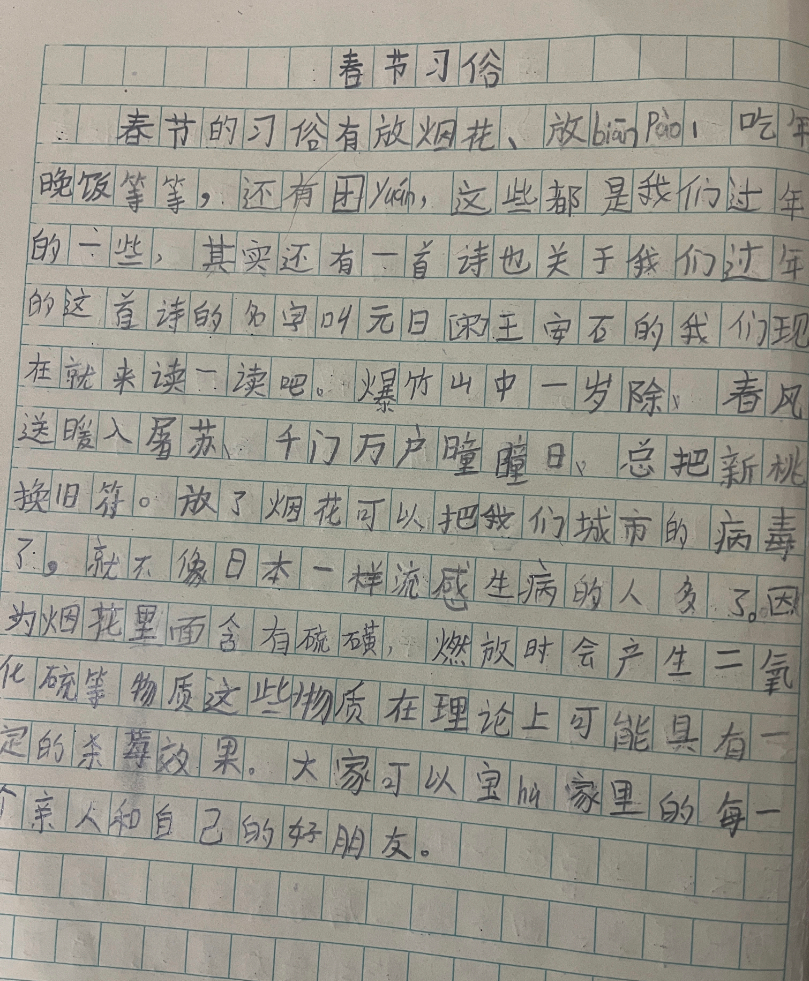 春节习俗
春节的习俗有放烟花、放biān Pào，吃年
晚饭等等，还有团yuán，这些都是我们过年
的一些，其实还有一首诗也关于我们过年
的这首诗的名字叫元日[宋]王安石的我们现
在就来读一读吧。爆竹山中一岁除、春风
送暖入屠苏、千门万户瞳瞳日、总把新桃
换旧符。放了烟花可以把我们城市的病毒
了，就不像日本一样流感生病的人多了。因
为烟花里面含有硫磺，燃放时会产生二氧
化硫等物质这些物质在理论上可能具有一
定的杀莓效果。大家可以宝hù家里的每一
个亲人和自己的好朋友。